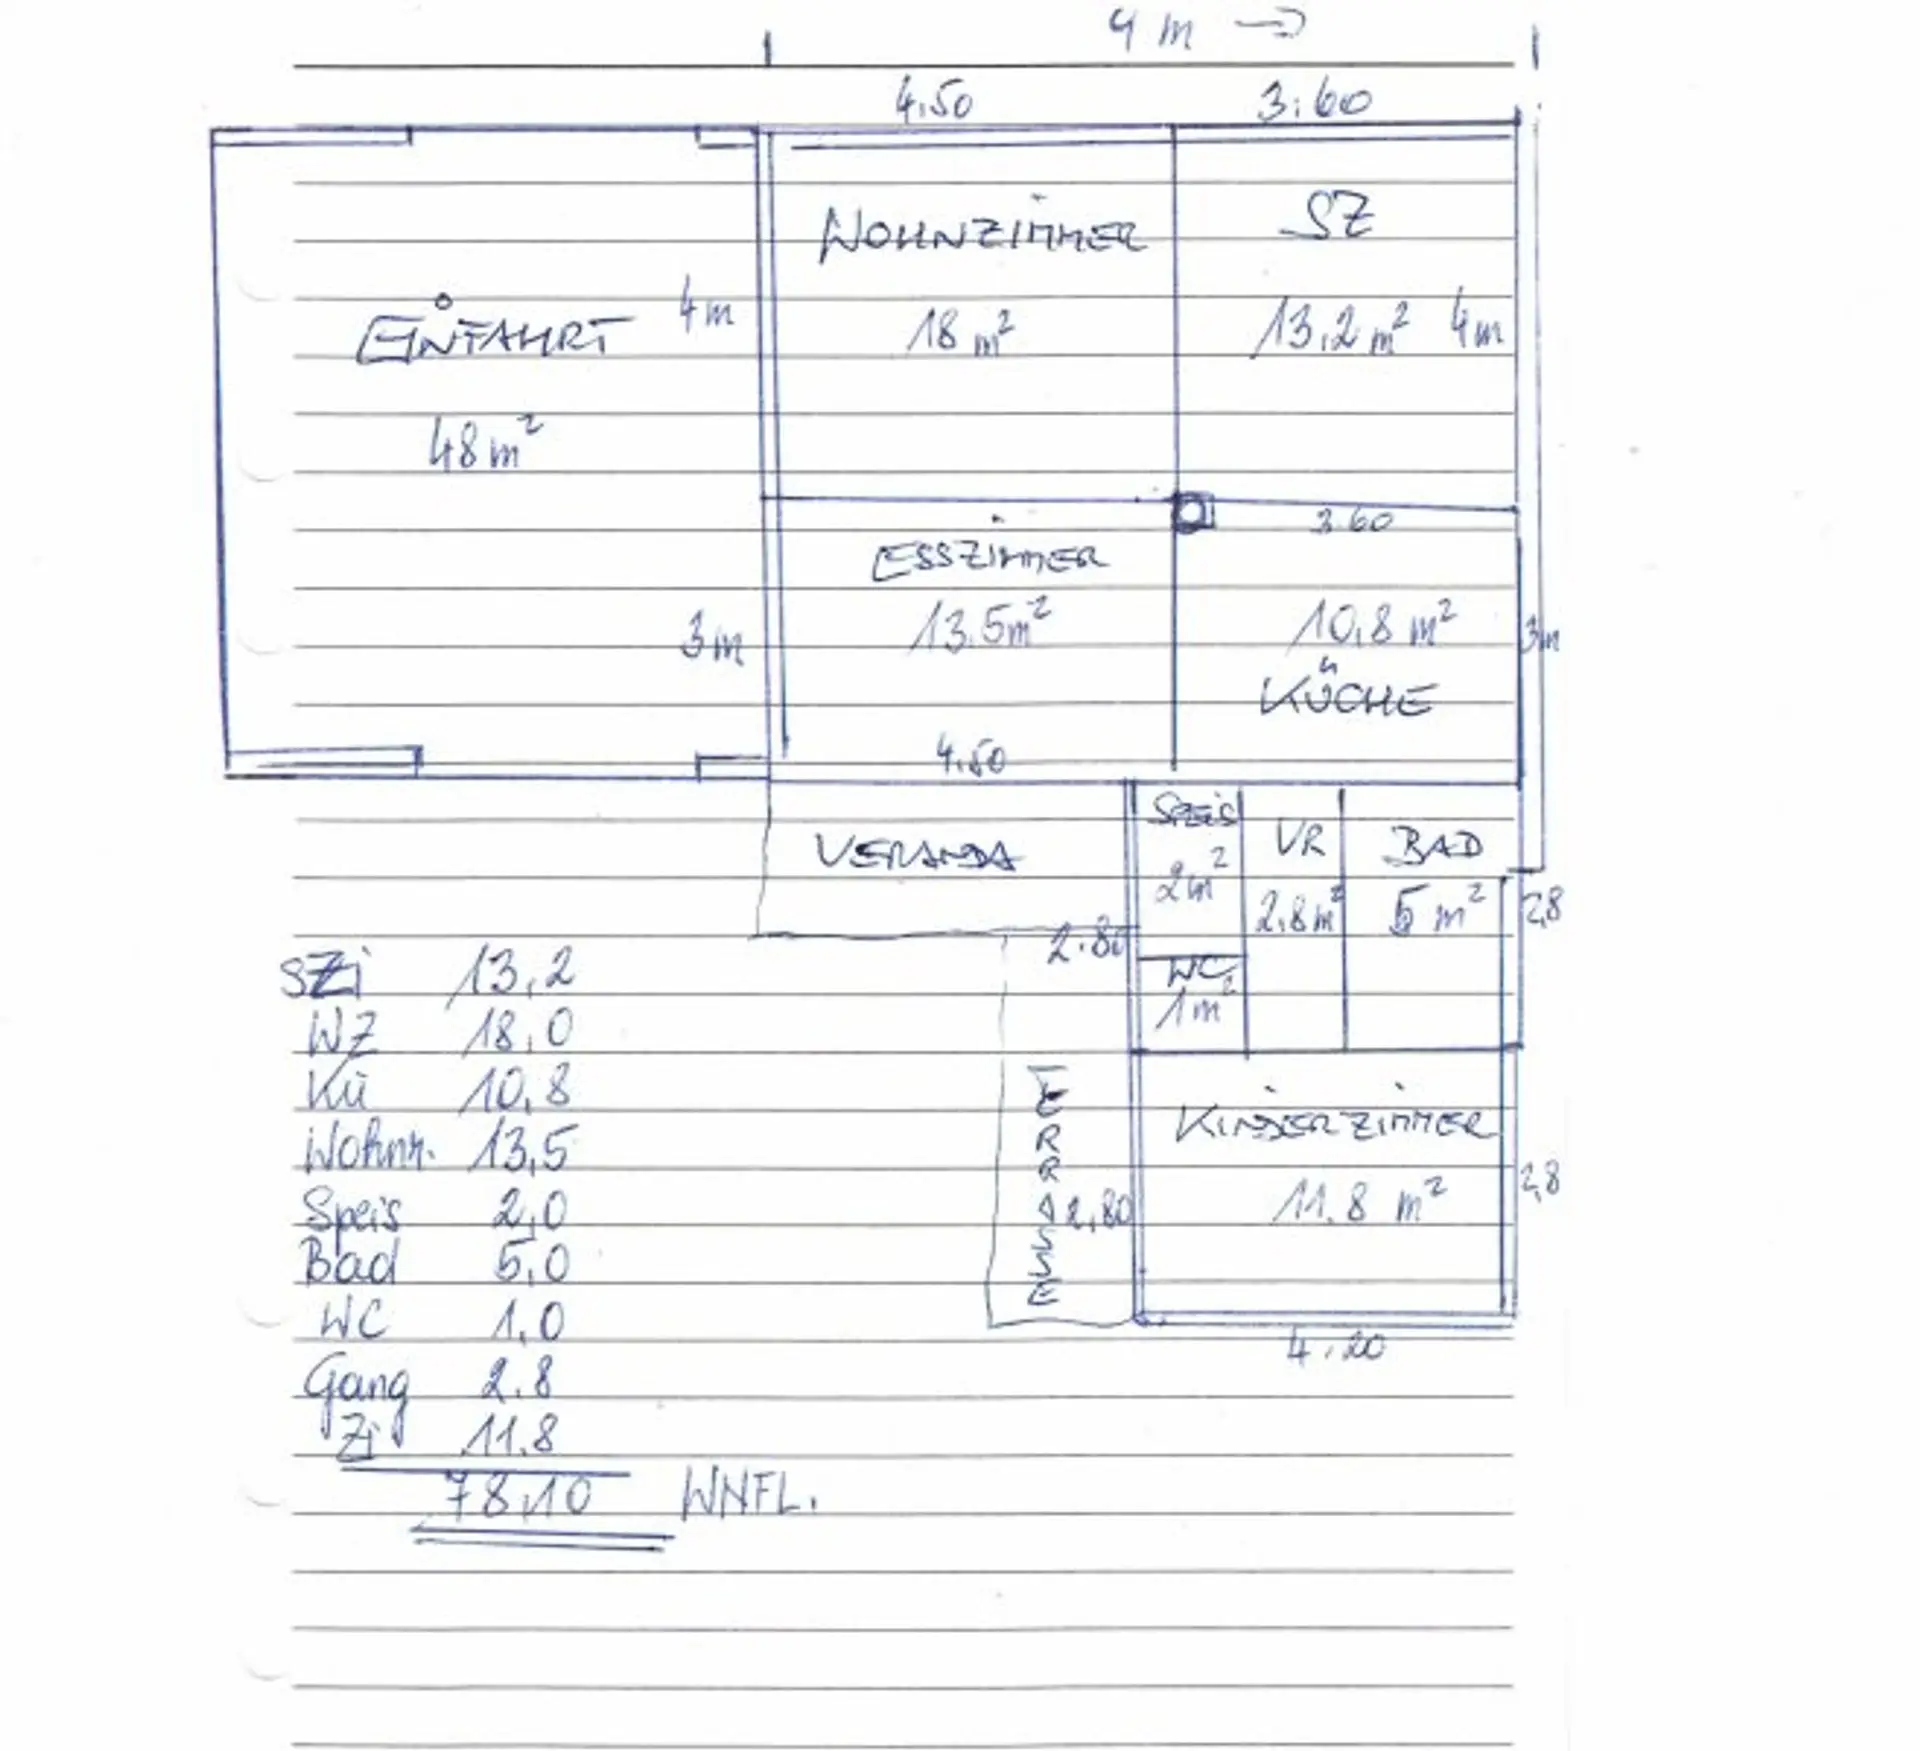 9 m →
4.50 3.60
WOHNZIMMER SZ
EINFAHRT 4m 18 m² 13,2 m² 4m
48 m²
3.60
ESSZIMMER
13.5m² 10,8 m²
3m 3m
KÜCHE
4.50
SPEIS VR BAD
VERANDA
2m² 2.8m² 5 m² 2,8
2.80
WC
1m²
TERRASSE
KINDERZIMMER
2,80 11.8 m² 2,8
4.20
SZi 13,2
WZ 18,0
Kü 10,8
Wohnr. 13,5
Speis 2,0
Bad 5,0
WC 1,0
Gang 2.8
Zi 11.8
78,10 WNFL.